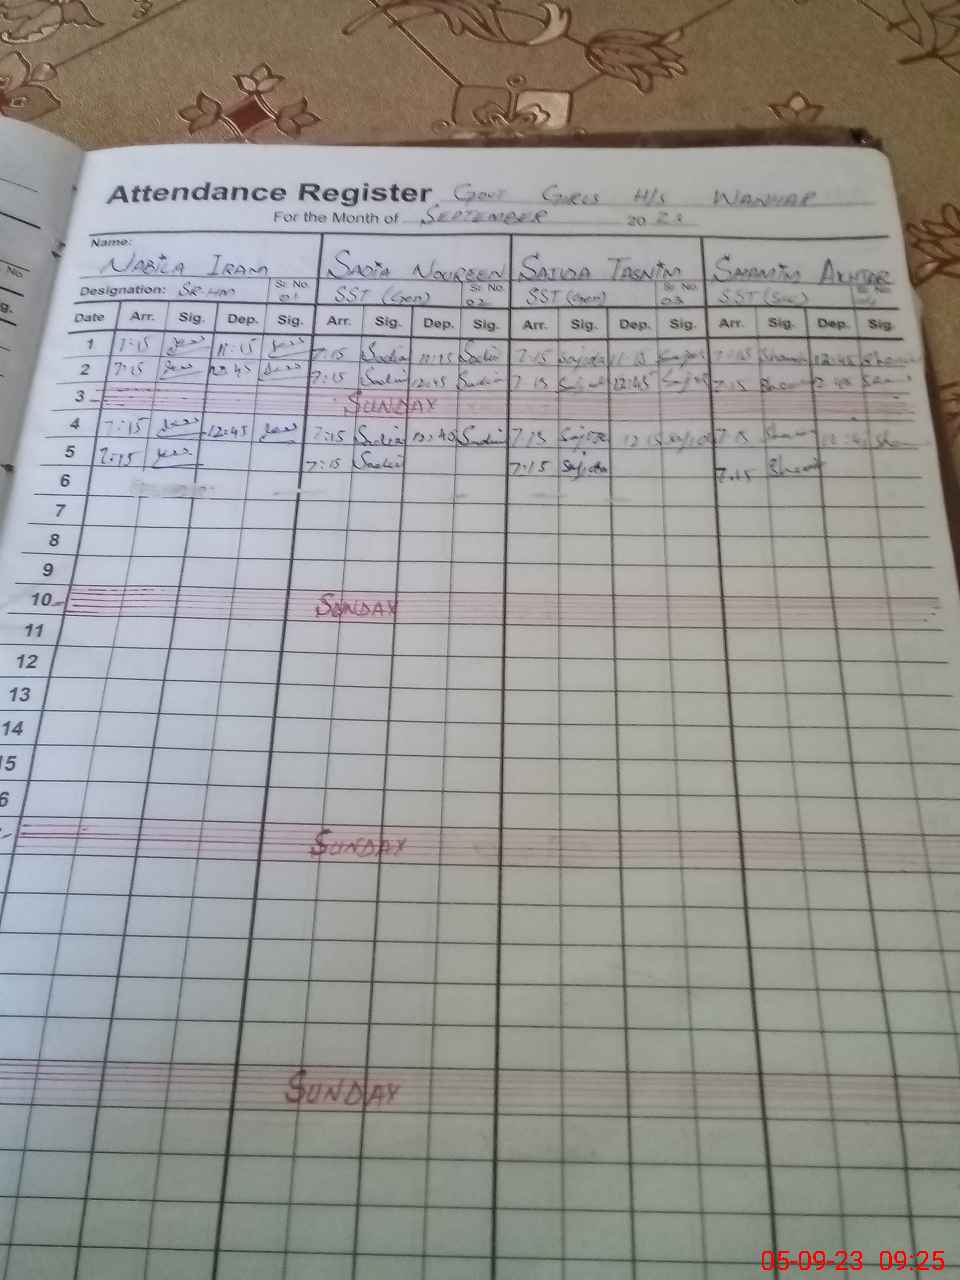 Attendance Register Govt Girls H/S Wanhar
For the Month of September 20 23
Name:
Nabila Iram Sadia Noureen Sajida Tasnim Shamim Akhtar
Designation: SR-HM Sr. No. 01 SST (Gen) 02 SST (Gen) Sr. No. 03 SST (Sci) Sr. No.
Date Arr. Sig. Dep. Sig. Arr. Sig. Dep. Sig. Arr. Sig. Dep. Sig. Arr. Sig. Dep. Sig.
1 7:15 11:15 7:15 Sadia 11:15 Sadia 7:15 Sajida 11:15 7:15
2 7:15 12:45 7:15 Sadia 12:45 Sadia 7:15 12:45 7:15
3 Sunday
4 7:15 12:45 7:15 Sadia 12:45 Sadia 7:15 7:15
5 7:15 7:15 Sadia 7:15 Sajida 7:15
6
7
8
9
10 Sunday
11
12
13
14
15
6
Sunday
Sunday
05-09-23 09:25